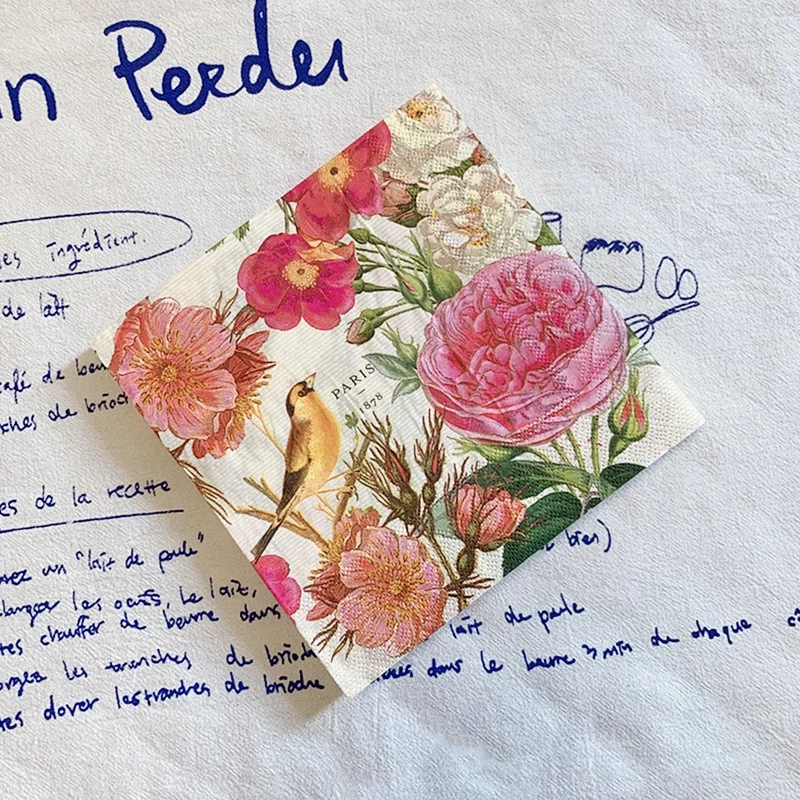 in Perdu
es ingrédient.
de lait
café de beu
ches de brioch
PARIS
1878
es de la recette
rez un "lait de poule"
bien)
langer les oeufs, le lait,
tes chauffer de beurre dans
lait de poule
orgez les tranches de brioch
tes dorer les tranches de brioche dans le beurre 3 min de chaque